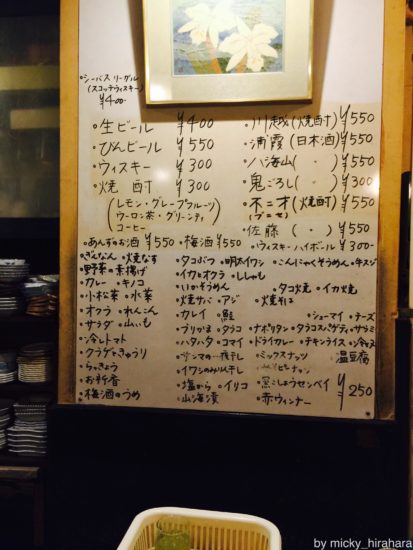 ・シーバスリーガル
(スコッチウィスキー)
¥400
・生ビール ¥400
・びんビール ¥550
・ウィスキー ¥300
・焼酎 ¥300
(レモン・グレープフルーツ
ウーロン茶・グリーンティ
コーヒー)
・川越(焼酎)¥550
・浦霞(日本酒)¥550
・八海山(〃)¥550
・鬼ごろし(〃)¥300
・不二才(焼酎)¥550
(ブニセ)
・佐藤(〃)¥550
・あんずのお酒 ¥550・梅酒 ¥550
・ウィスキーハイボール ¥300
・ぎんなん・焼なす
・野菜の素揚げ
・カレー・キノコ
・小松菜・水菜
・オクラ・れんこん
・サラダ・山いも
・冷しトマト
・クラゲときゅうり
・らっきょう
・お新香
・梅酒のうめ
・タコぶつ・明太イワシ・こんにゃくそうめん・牛スジ
・イカとオクラ・ししゃも
・いかそうめん・タコ焼・イカ焼
・焼サバ・アジ・焼そば
・カレイ・鮭・シューマイ・チーズ
・ブリかま・タラコ・ナポリタン・タラコスパゲティ・サラミ
・ハタハタ・コマイ・ドライカレー・チキンライス・冷ヤッコ
・サンマの一夜干し・ミックスナッツ 温豆腐
・イワシのみりん干し
・塩から・イリコ・黒こしょうセンベイ
・山海漬・赤ウィンナー
¥250
by micky_hirahara